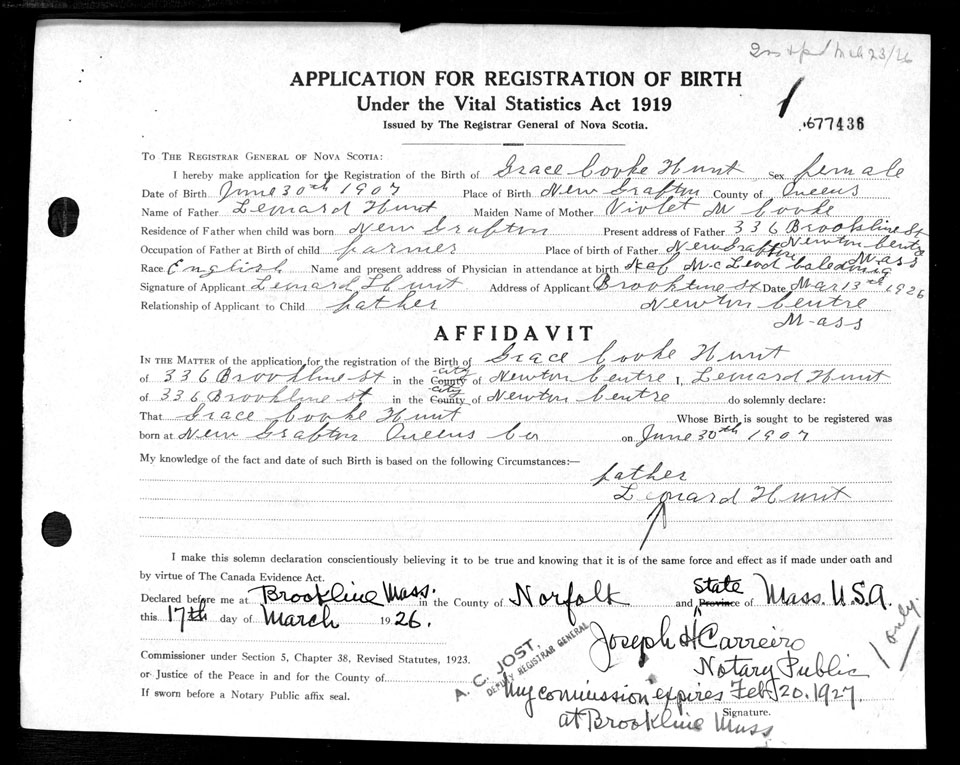 Mch 23/26
APPLICATION FOR REGISTRATION OF BIRTH
Under the Vital Statistics Act 1919
1
677436
Issued by The Registrar General of Nova Scotia.
TO THE REGISTRAR GENERAL OF NOVA SCOTIA:
I hereby make application for the Registration of the Birth of Grace Cooke Hunt Sex female
Date of Birth June 30th 1907 Place of Birth New Grafton County of Queens
Name of Father Leonard Hunt Maiden Name of Mother Violet M Cooke
Residence of Father when child was born New Grafton Present address of Father 336 Brookline St
Newton Centre
Mass
Occupation of Father at Birth of child farmer Place of birth of Father New Grafton
Race English Name and present address of Physician in attendance at birth McLeod Caledonia
Signature of Applicant Leonard Hunt Address of Applicant Brookline St Date Mar 13th 1926
Relationship of Applicant to Child father Newton Centre
Mass
AFFIDAVIT
IN THE MATTER of the application for the registration of the Birth of Grace Cooke Hunt
of 336 Brookline St in the County city of Newton Centre I, Leonard Hunt
of 336 Brookline st in the County city of Newton Centre do solemnly declare:
That Grace Cooke Hunt Whose Birth is sought to be registered was
born at New Grafton Queens Co on June 30th 1907
My knowledge of the fact and date of such Birth is based on the following Circumstances:—
father
Leonard Hunt
I make this solemn declaration conscientiously believing it to be true and knowing that it is of the same force and effect as if made under oath and
by virtue of The Canada Evidence Act.
Declared before me at Brookline Mass. in the County of Norfolk and Province State of Mass. U.S.A.
this 17th day of March 1926.
Joseph H Carreiro
1 only.
Commissioner under Section 5, Chapter 38, Revised Statutes, 1923.
A. C. JOST,
DEPUTY REGISTRAR GENERAL
Notary Public
or Justice of the Peace in and for the County of
My commission expires Feb. 20. 1927.
If sworn before a Notary Public affix seal.
Signature.
at Brookline Mass